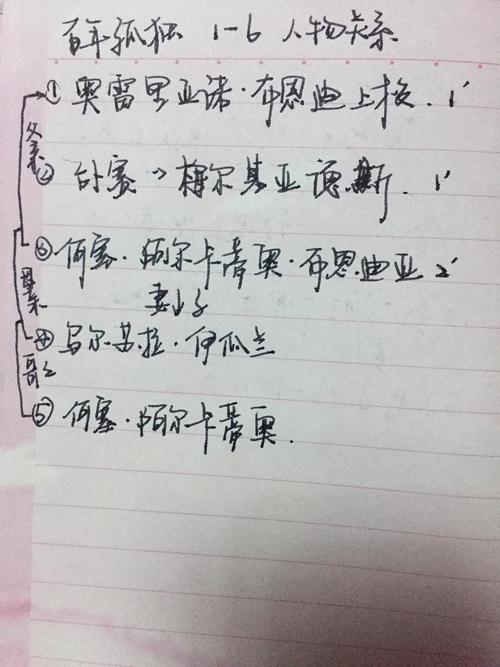 百年孤独 1-6 人物关系
① 奥雷里亚诺·布恩迪上校. 1'
父亲
② 吉普赛 → 梅尔基亚德斯. 1'
③ 何塞·阿尔卡蒂奥·布恩迪亚 2'
妻子
母亲
④ 乌尔苏拉·伊瓜兰
哥哥
⑤ 何塞·阿尔卡蒂奥.